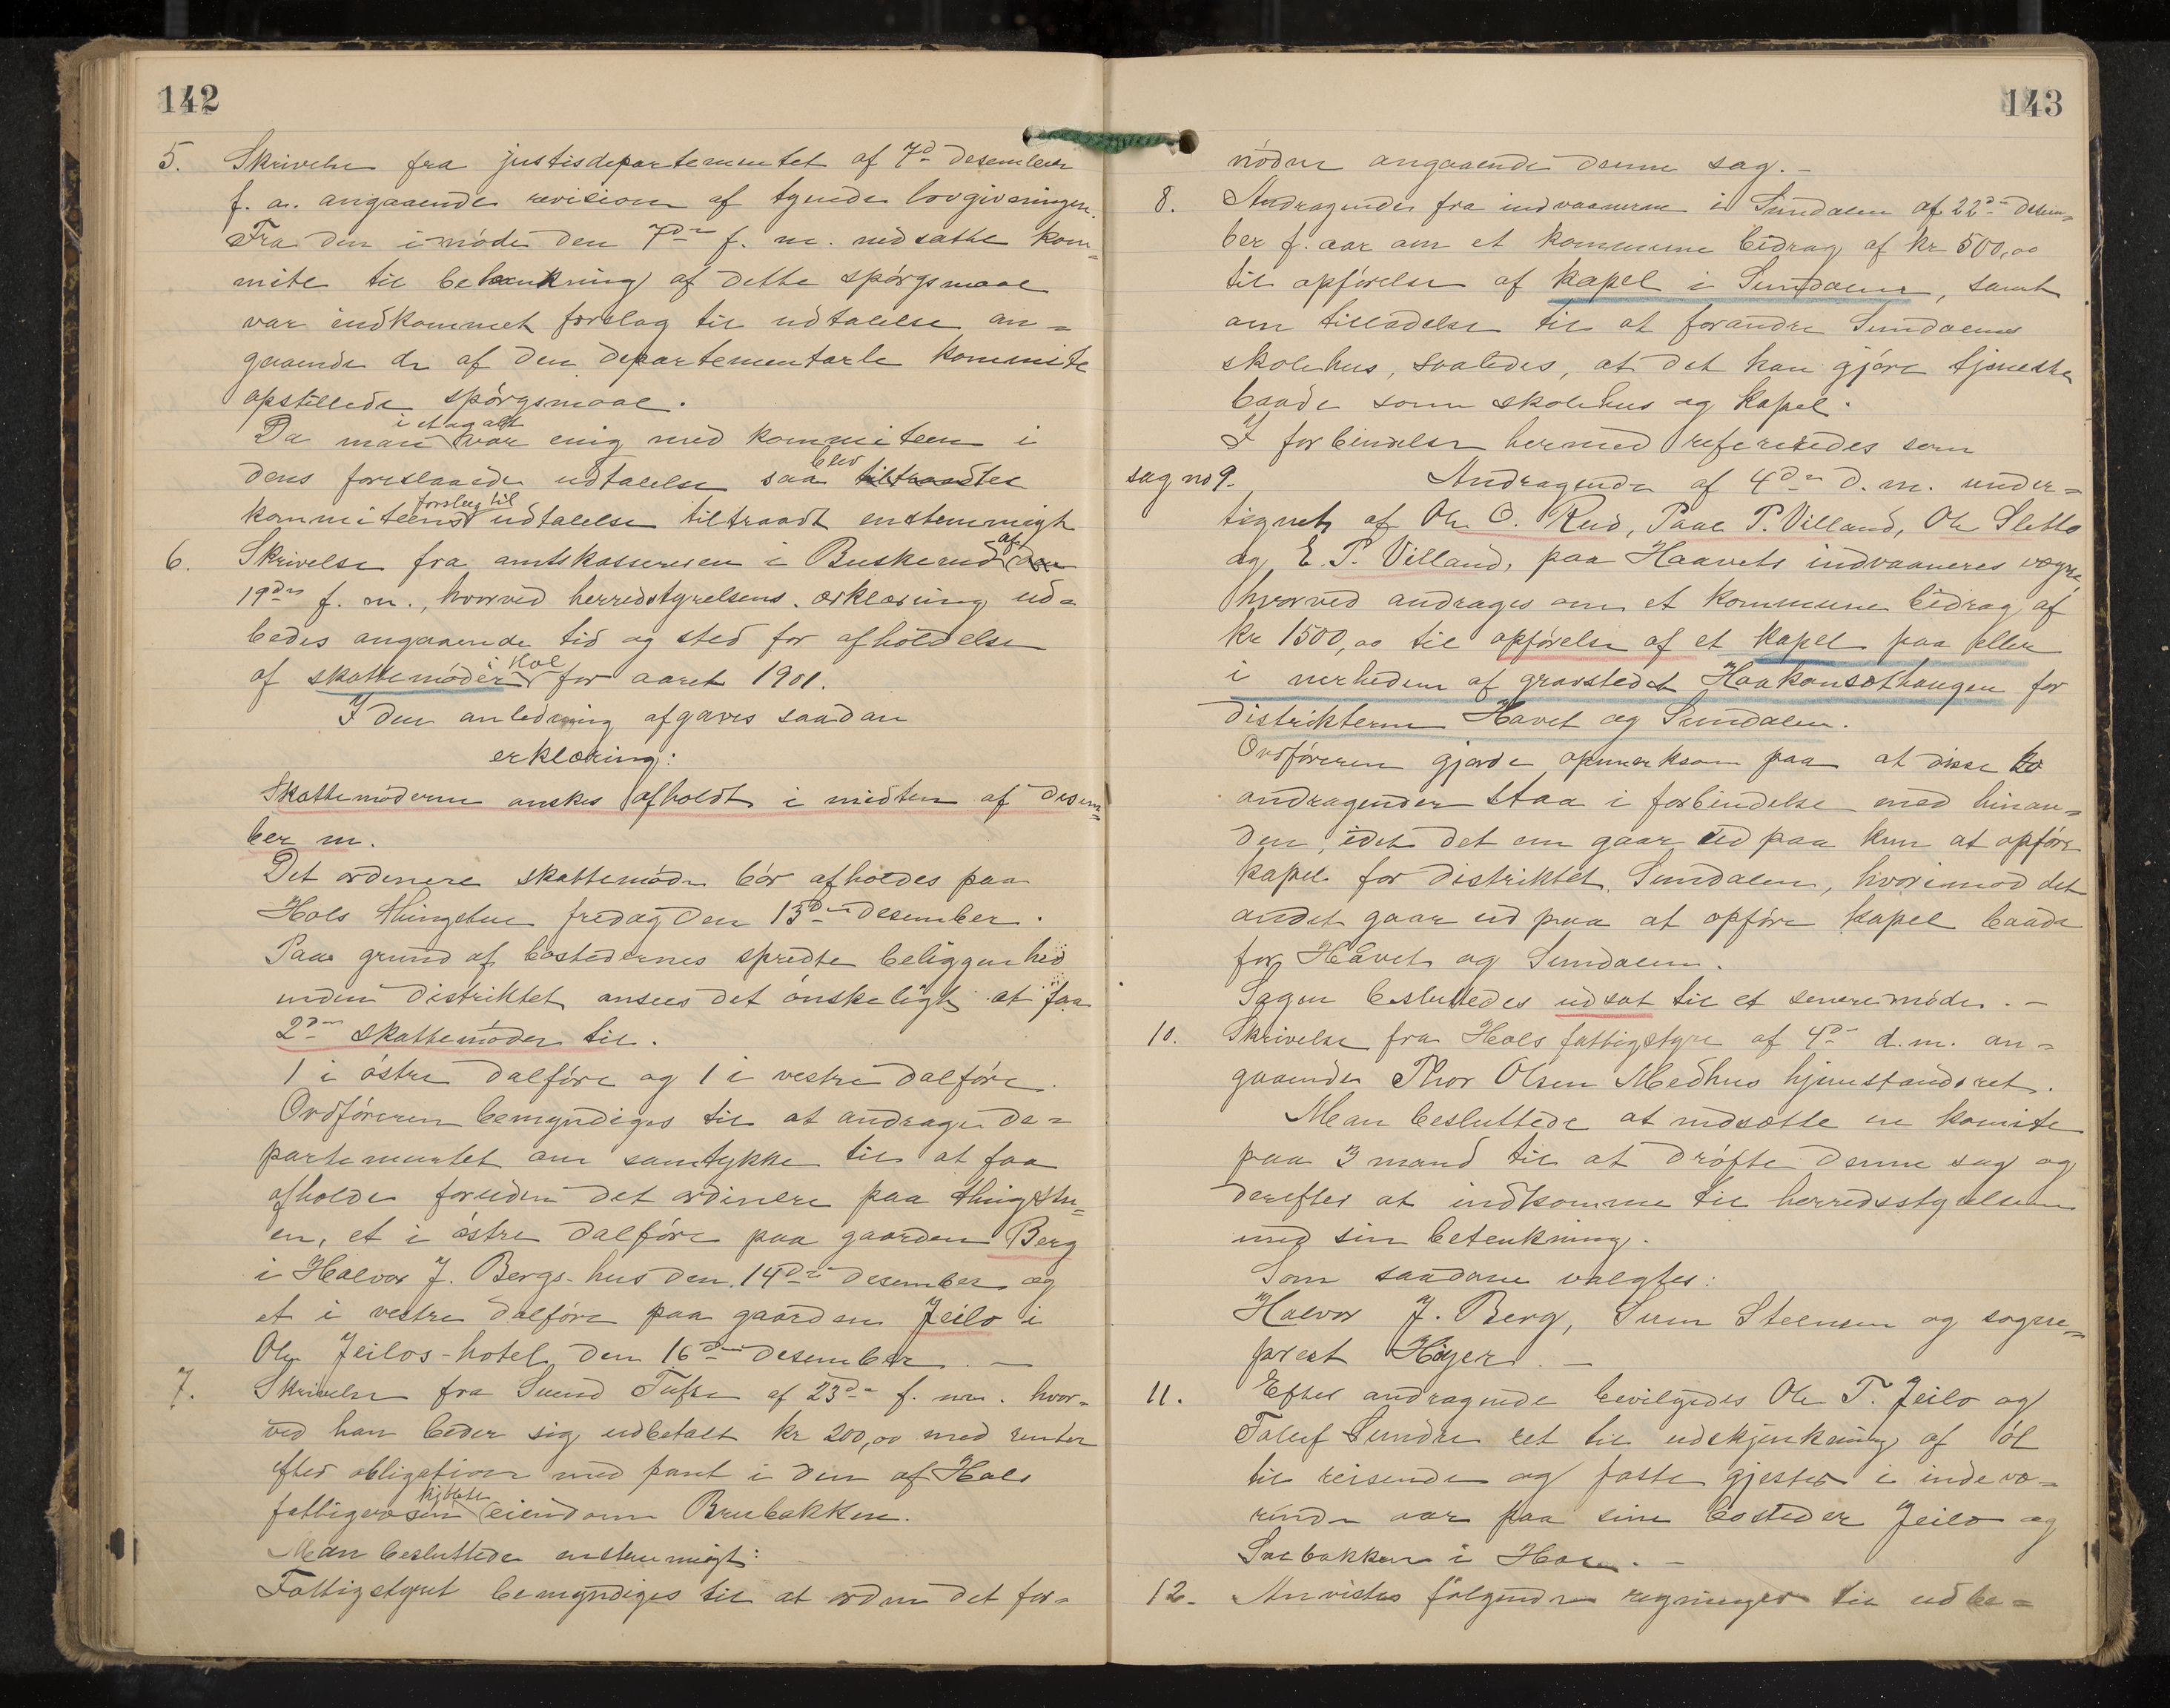 142
5. Skrivelse fra justisdepartementet af 7d desember
f. a. angaaende revision af tyende lovgivningen.
Fra den i møde den 7de f. m. nedsatte kom=
mite til behankning af dette spørgsmaal
var indkommet forslag til udtalelse an=
gaaende de af den departementale kommite
opstillede spørgsmaal.
Da man i et og alt var enig med kommiteen i
dens foreslaaede udtalelse saa blev
kommiteens forslag til udtalelse tiltraadt enstemmigt
6. Skrivelse fra amtskassereren i Buskerud af
19de f. m., hvorved herredstyrelsens erklæring ud=
bedes angaaende tid og sted for afholdelse
af skattemøder i Hol for aaret 1901.
I den anledning afgaves saadan
erklæring:
Skattemøderne ønskes afholdt i midten af desem=
ber m.
Det ordenere skattemøde bør afholdes paa
Hols thingstue fredag den 13de desember.
Paa grund af bostedernes spredte beliggenhed
inden distriktet ansees det ønskeligt at faa
2de skattemøder til.
1 i østre dalføre og 1 i vestre dalføre.
Ordføreren bemyndiges til at andrage de=
partementet om samtykke til at faa
afholde foruden det ordinere paa thingstu=
en, et i østre dalføre paa gaarden Berg
i Halvor J. Bergs hus den 14de desember og
et i vestre dalføre paa gaarden Jeilo i
Ole Jeilos hotel den 16de desember. —
7. Skrivelse fra Svend Tufte af 23de f. m. hvor=
ved han beder sig udbetalt kr 200,00 med renter
efter obligation med pant i den af Hols
fattigvæsen kjøbte eiendom Brubakken.
Man besluttede enstemmigt:
Fattigstyret bemyndiges til at ordne det for=
143
nødne angaaende denne sag. —
8. Andragende fra indvaanerne i Sundalen af 22de desem=
ber f. aar om et kommune bidrag af kr 500,00
til opførelse af kapel i Sundalen, samt
om tilladelse til at forandre Sundalens
skolehus, saaledes, at det kan gjøre tjeneste
baade som skolehus og kapel.
I forbindelse hermed refereredes som
sag no 9. Andragende af 4de d. m. under=
tignet af Ole O. Rud, Paal P. Villand, Ole Sletto
og E. P. Villand, paa Haavets indvaaneres vegne,
hvorved andrages om et kommune bidrag af
kr 1500,00 til opførelse af et kapel paa eller
i nerheden af gravstedet Haakonsethaugen for
distrikterne Havet og Sundalen.
Ordføreren gjorde opmerksom paa at disse to
andragender staa i forbindelse med hinan=
den, idet det en gaar ud paa kun at opføre
kapel for distriktet Sundalen, hvorimod det
andet gaar ud paa at opføre kapel baade
for Håvet og Sundalen.
Sagen besluttedes udsat til et senere møde. —
10. Skrivelse fra Hols fattigstyre af 4de d. m. an=
gaaende Thor Olsen Medhus hjemstandsret.
Man besluttede at nedsætte en komite
paa 3 mand til at drøfte denne sag og
derefter at indkomme til herredsstyrelsen
med sin betenkning.
Som saadane valgtes:
Halvor J. Berg, Sven Steensen og sogne=
prest Høyer. —
11. Efter andragende bevilgedes Ole T. Jeilo og
Toluf Sundre ret til udskjenkning af øl
til reisende og faste gjester i indevæ=
rende aar paa sine bosteder Jeilo og
Solbakken i Hol. —
12. Anvistes følgende regninger til udbe=